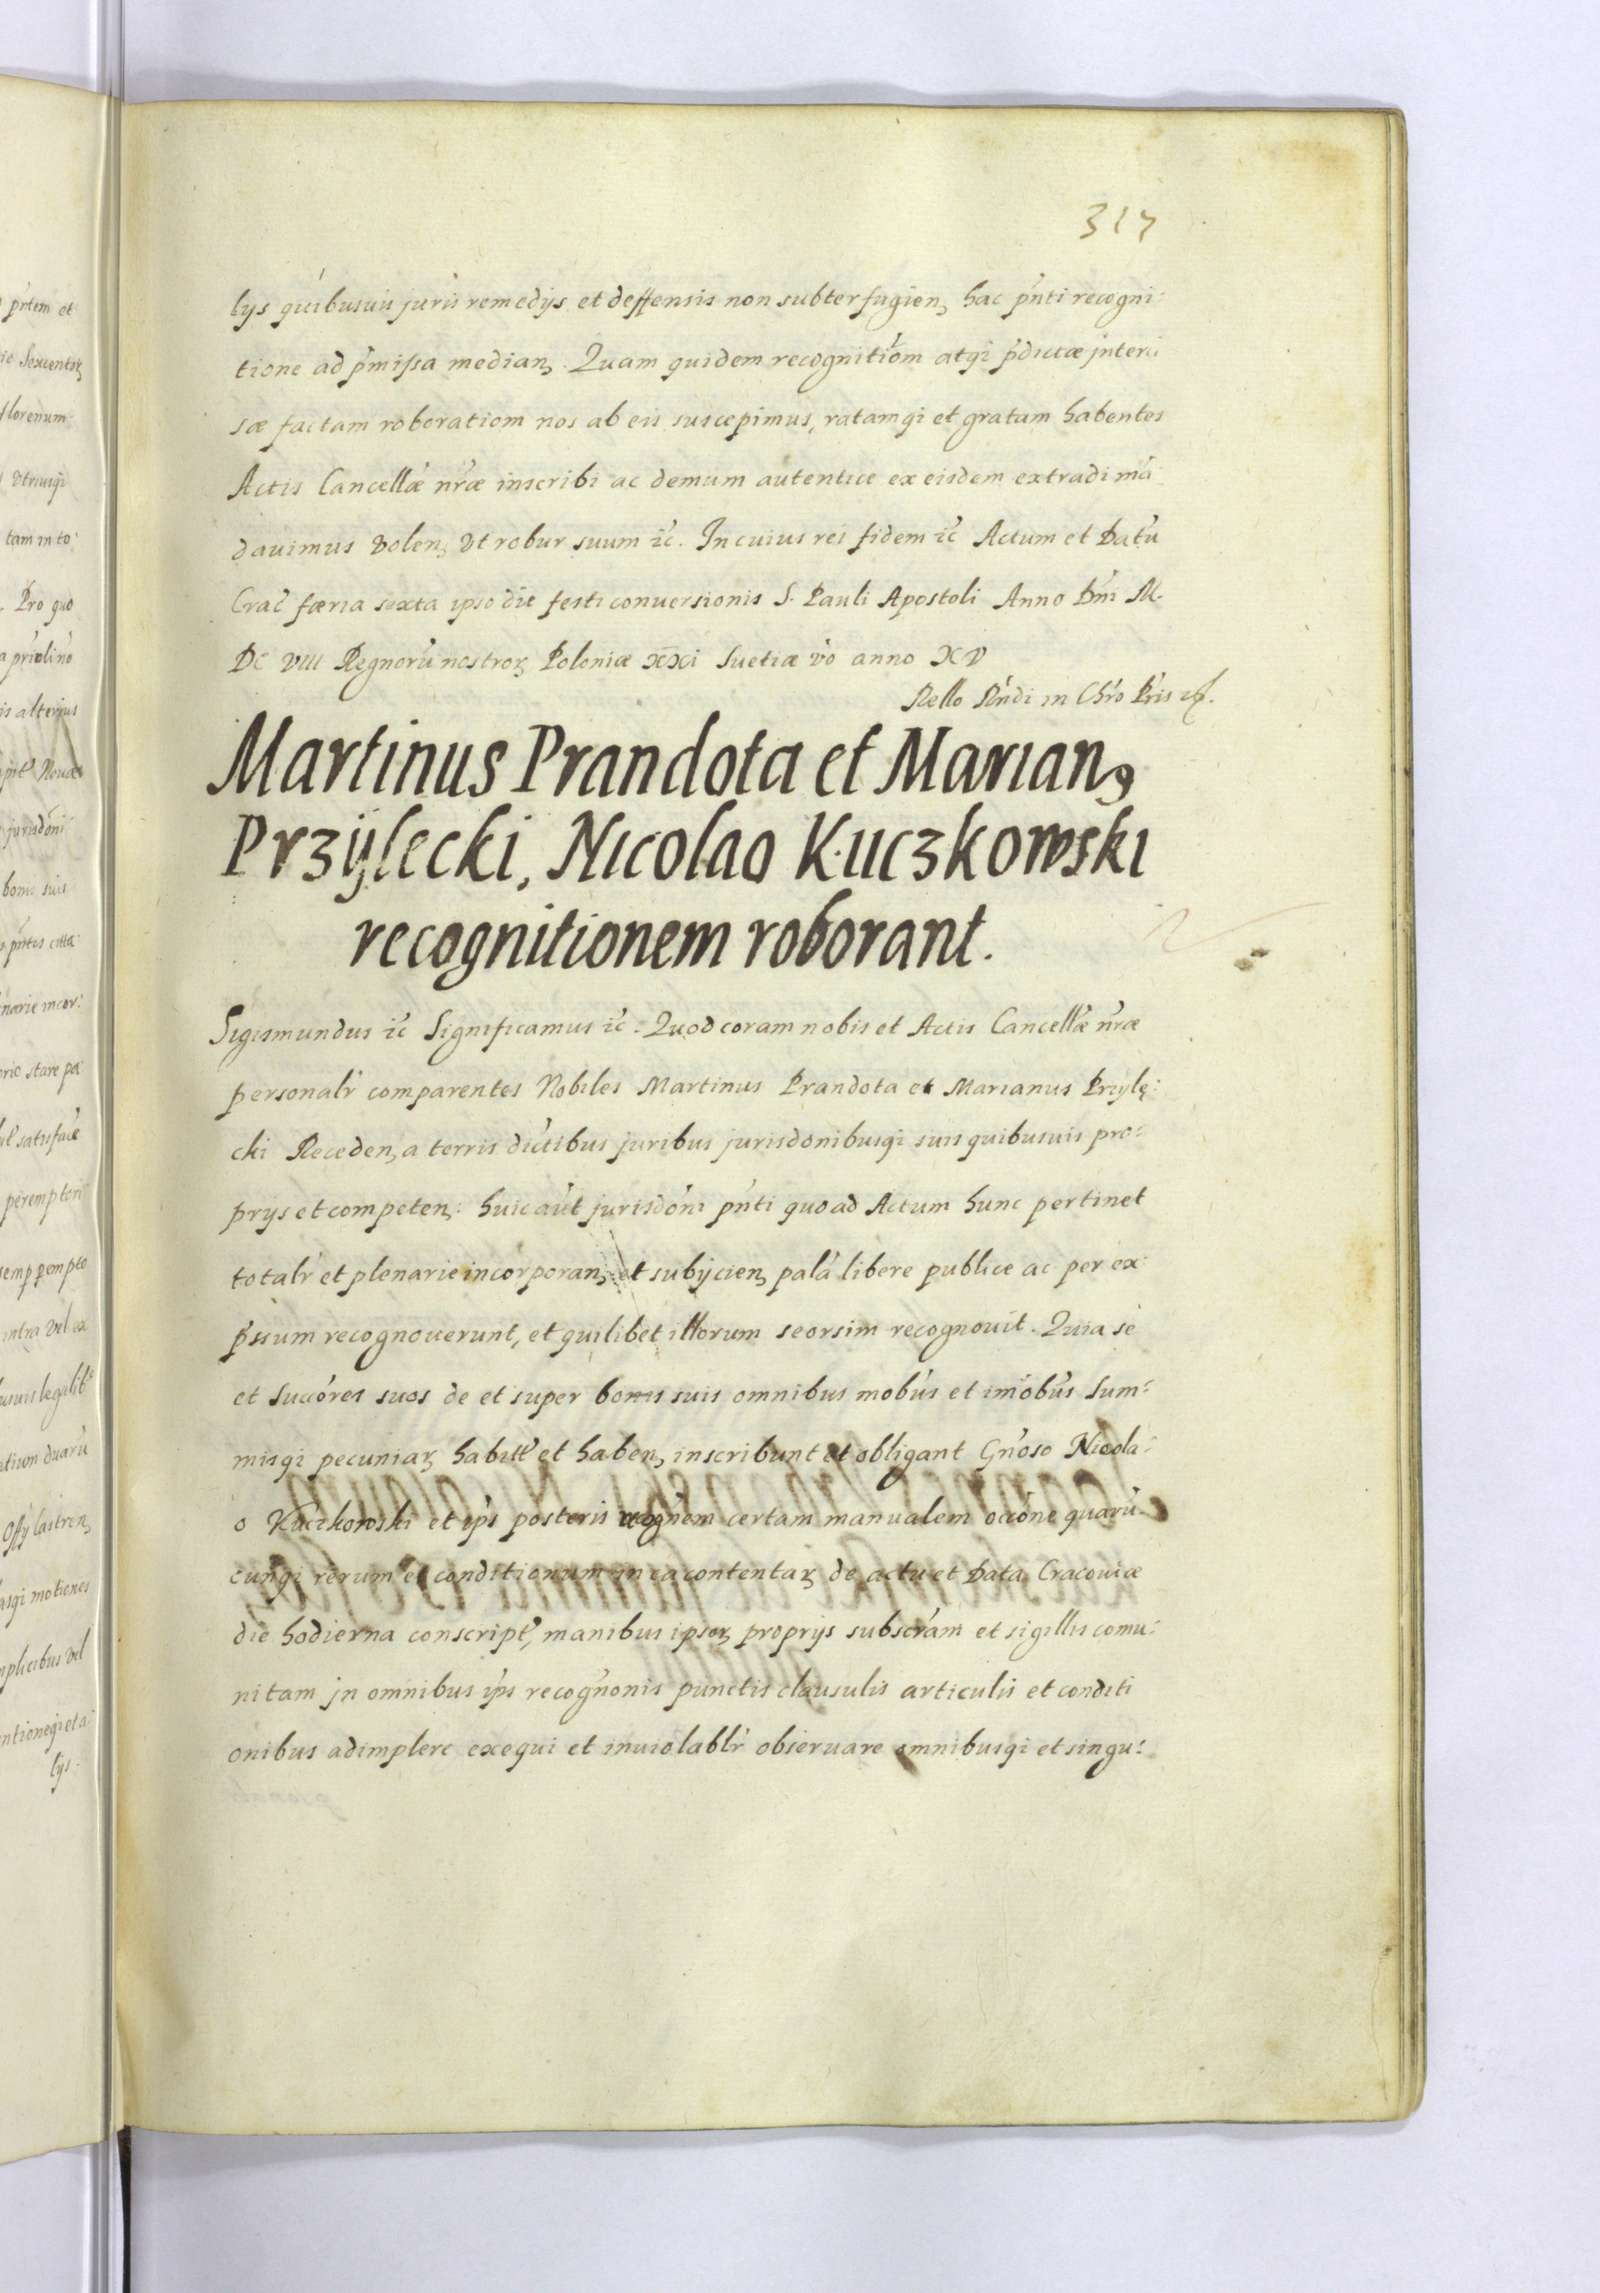 317
lys quibusuis juris remedijs et deffensis non subterfugien, hac pñti recogni:
tione ad pmissa median, Quam quidem recognitiom atqi pdictæ jnterci
sæ factam roboratiom nos ab eis suscepimus, ratamqi et gratam habentes
Actis Cancellæ nræ inscribi ac demum autentice ex eisdem extradi mã
dauimus volen, vt robur suum ic. In cuius rei fidem ic Actum et Datũ
Crac færia sexta ipso die festi conuersionis S. Pauli Apostoli Anno Dni M.
DC VIII Regnorũ nostror, Poloniæ XXI Suetiæ vo anno XV
Rello Rndi in Chro Pris
Martinus Prandota et Marian9
Przÿlecki, Nicolao Kuczkowski
recognitionem roborant.
Sigismundus ic Significamus ic. Quod coram nobis et Actis Cancellæ nræ
personalr comparentes Nobiles Martinus Prandota et Marianus Przylę:
cki Receden, a terris dictibus juribus jurisdonibusqi suis quibusuis pro:
prijs et competen: huic aut jurisdoni pñti quo ad Actum hunc pertinet
totalr et plenarie incorporan, et subijcien, palã libere publice ac per ex:
pssum recognouerunt, et quilibet illorum seorsim recognouit. Quia se
et Succores suos de et super bonis suis omnibus mobus et imobus Sum:
misqi pecuniar, habitt et haben, inscribunt et obligant Gnoso Nicola:
o Kuczkowski et ips posteris recognem certam manualem occone quarũ
cunqi rerum et conditionum in ea contentar, de actu et Data Cracouiæ
die hodierna conscript, manibus ipsor, proprijs subscram et sigillis comu:
nitam jn omnibus ips recognonis punctis clausulis articulis et conditi
onibus adimplere exequi et inuiolablr obseruare omnibusqi et singu: